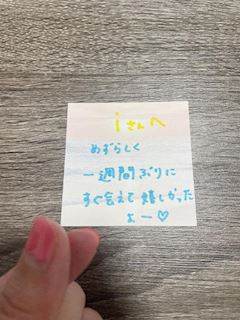 iさんへ
めずらしく
一週間ぶりに
すぐ会えて嬉しかった
よー♡